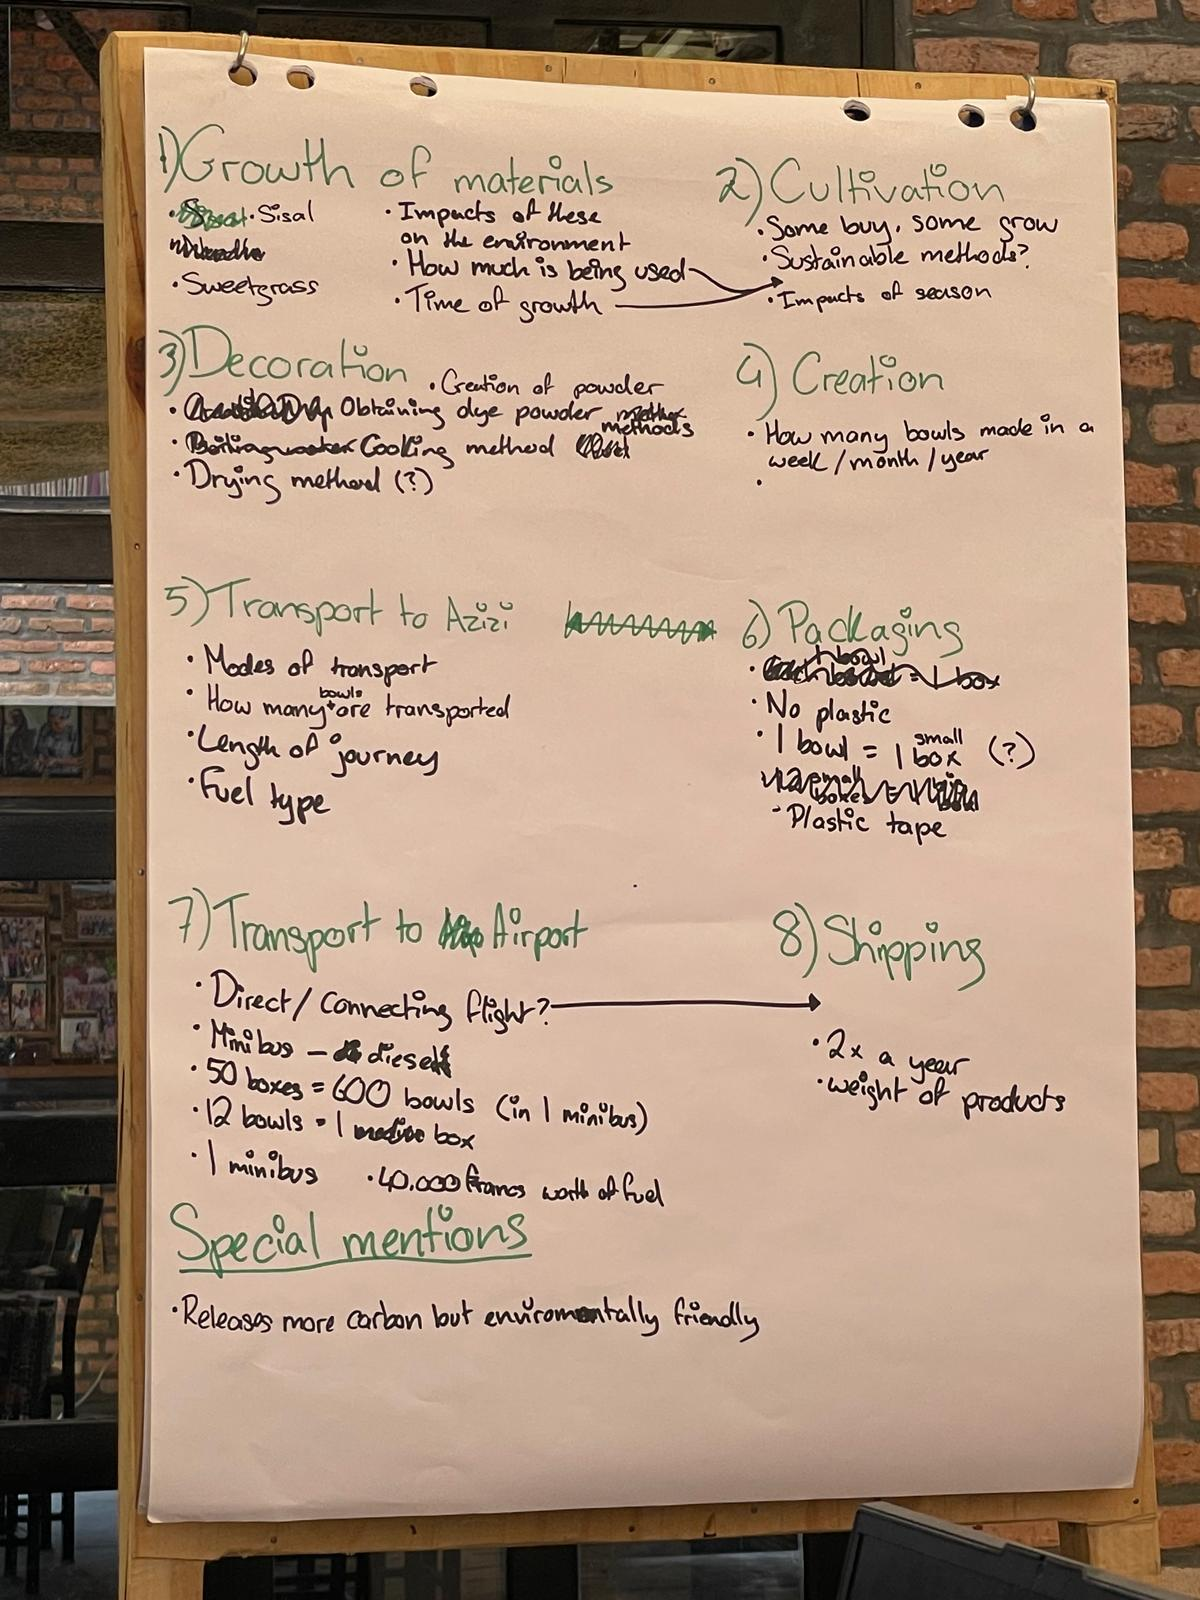 1) Growth of materials
• Sisal
• Sweetgrass
• Impacts of these
on the environment
• How much is being used
• Time of growth
2) Cultivation
• Some buy, some grow
• Sustainable methods?
• Impacts of season
3) Decoration
• Creation of powder
• Obtaining dye powder methods
• Cooking method
• Drying method (?)
4) Creation
• How many bowls made in a
week / month / year
•
5) Transport to Azizi
• Modes of transport
• How many bowls are transported
• Length of journey
• Fuel type
6) Packaging
• No plastic
• 1 bowl = 1 small box (?)
• Plastic tape
7) Transport to Airport
• Direct / Connecting flight?
• Minibus – diesel
• 50 boxes = 600 bowls (in 1 minibus)
• 12 bowls = 1 box
• 1 minibus
• 40.000 francs worth of fuel
8) Shipping
• 2x a year
• weight of products
Special mentions
• Releases more carbon but enviromentally friendly